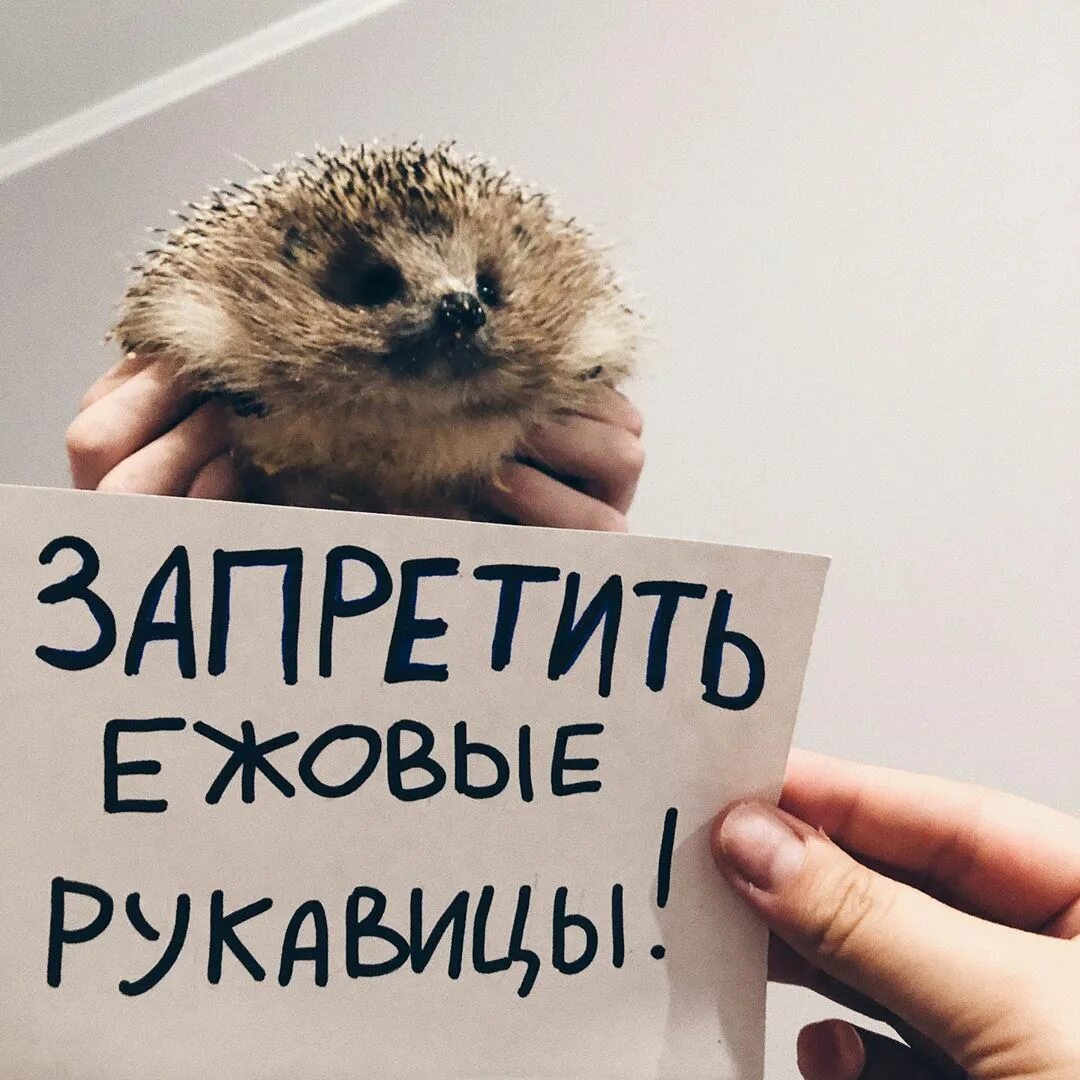 ЗАПРЕТИТЬ
ЕЖОВЫЕ
РУКАВИЦЫ!